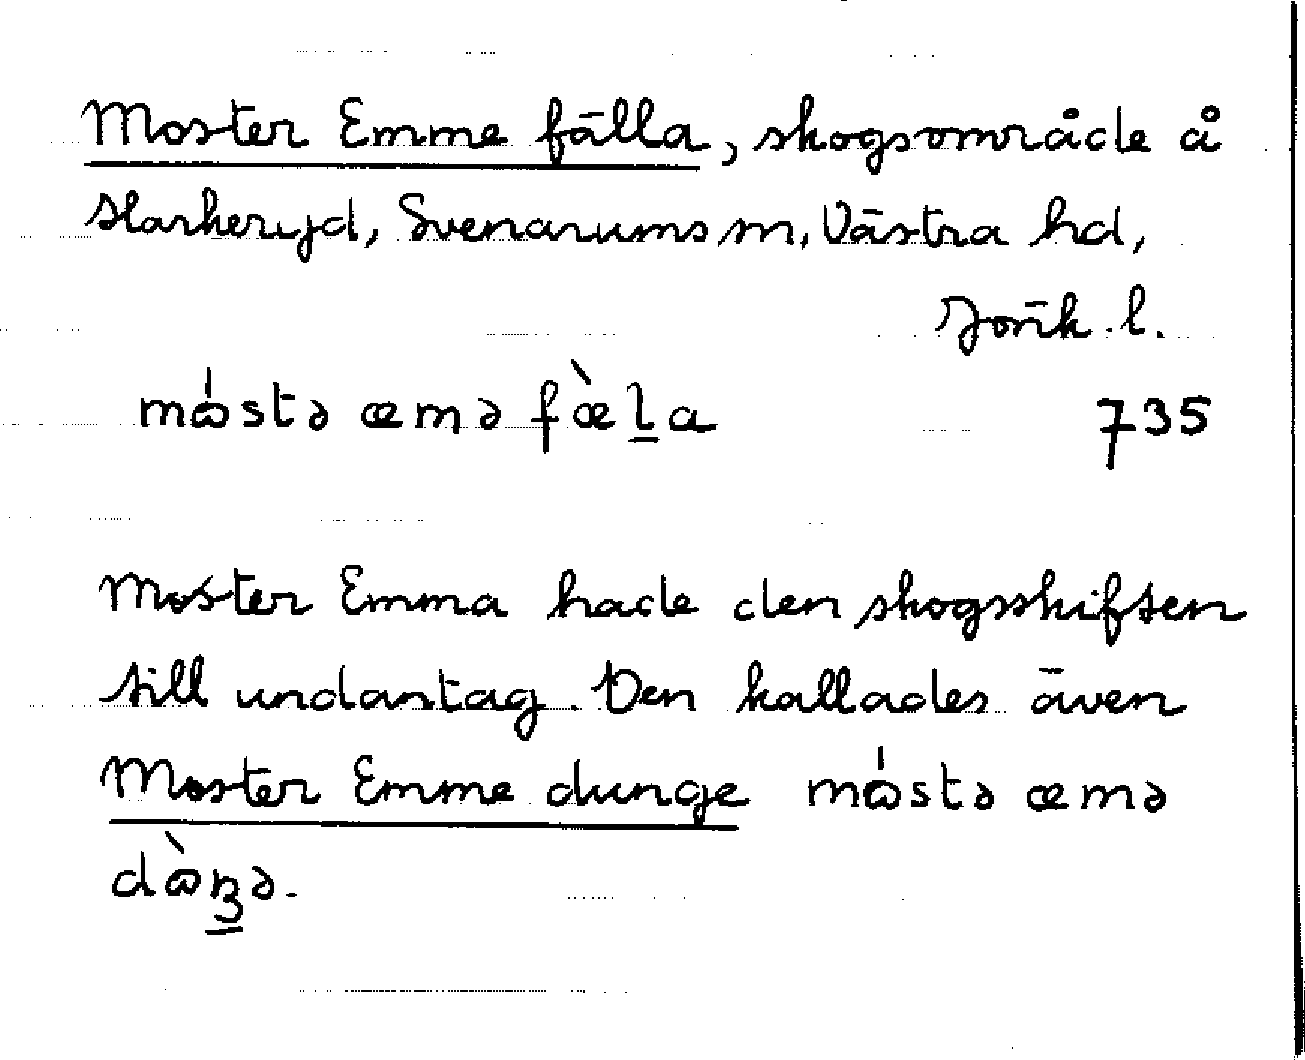 Moster Emme fälla, skogsområde å
Starkeryd, Svenarums sn, Västra hd,
Jönk. l.
mɷ́stə æmə fæ̀l̲a 735
Moster Emma hade den skogsskiften
till undantag. Den kallades även
Moster Emme dunge mɷ́stə æmə
dɷ̀ŋ̳ə.